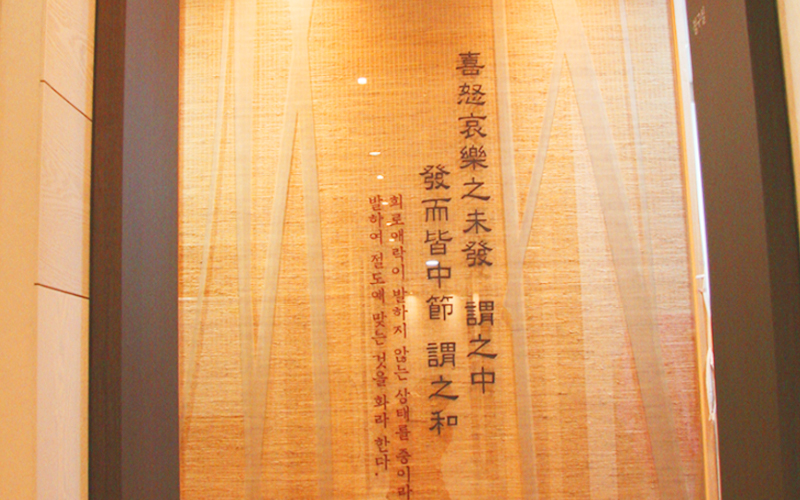 喜怒哀樂之未發 謂之中
發而皆中節 謂之和
희로애락이 발하지 않는 상태를 중이라
발하여 절도에 맞는 것을 화라 한다.